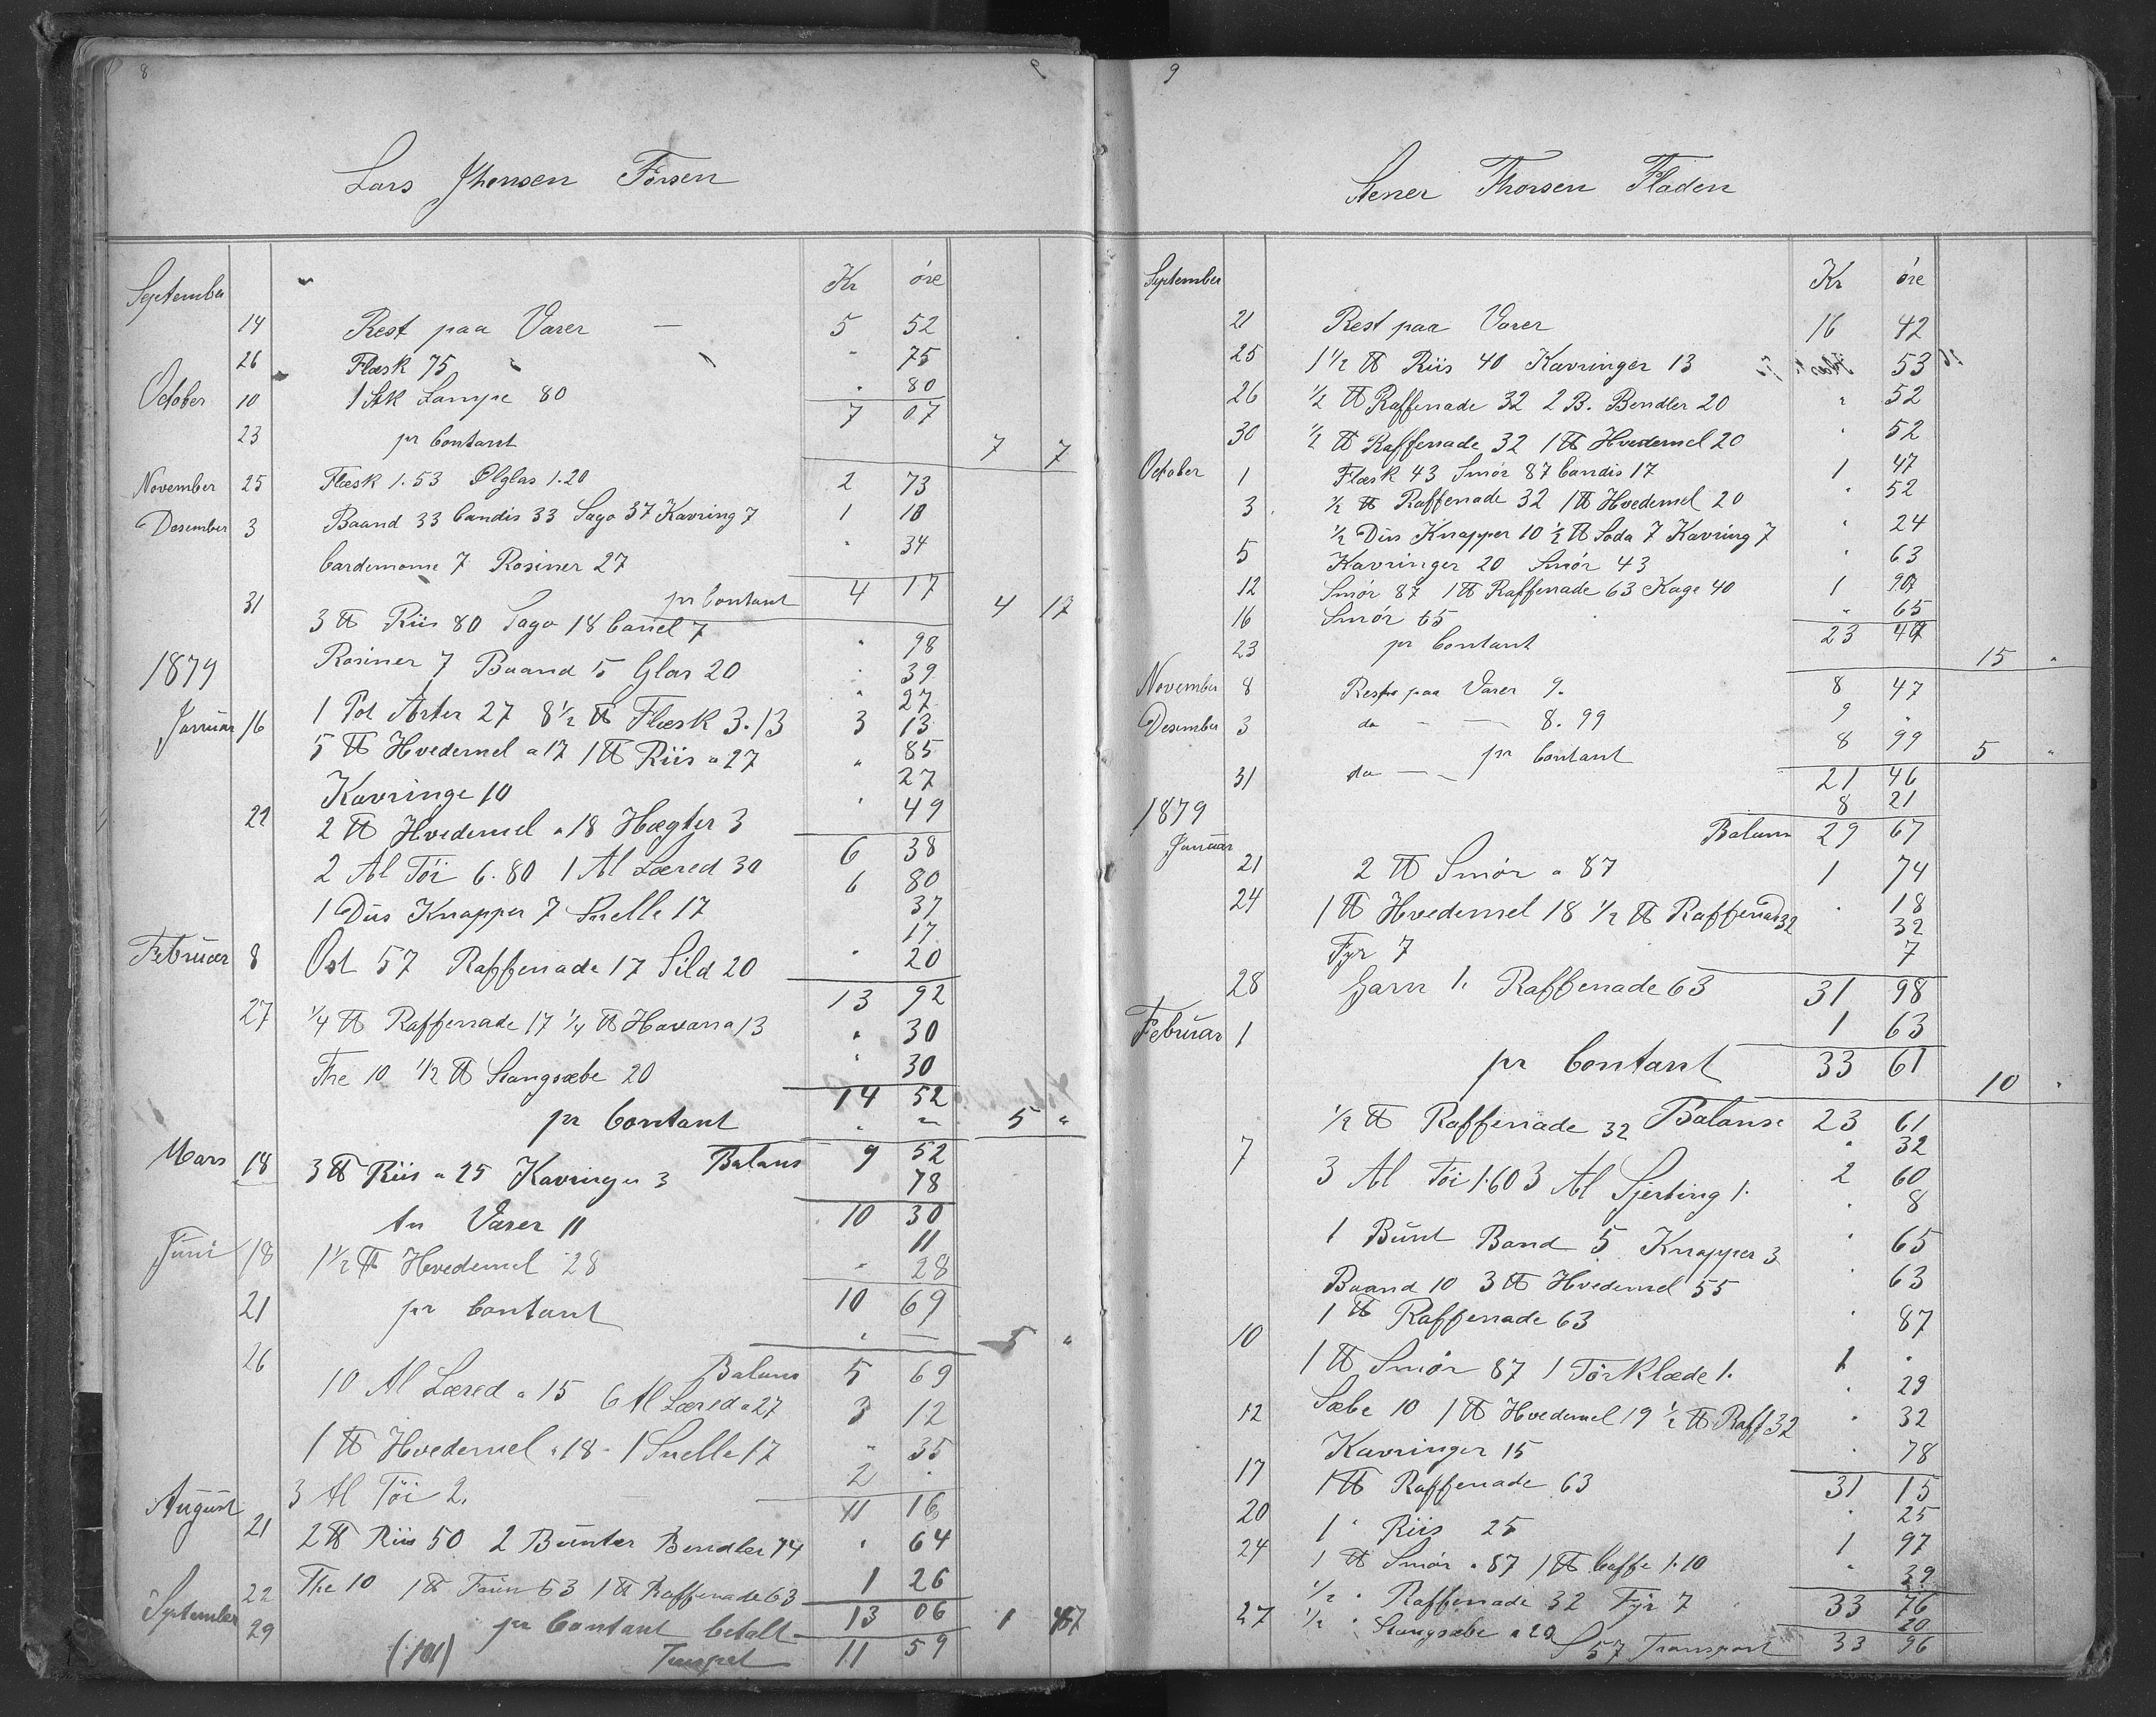 8
Lars Jhensen Fosen
Kr øre
September
14 Rest paa Varer — 5 52
26 Flæsk 75 " 75
October 10 1 Stk Lampe 80 " 80
7 07
23 pr Contant 7 7
November 25 Flæsk 1.53 Ølglas 1.20 2 73
Desember 3 Baand 33 Candis 33 Sago 37 Kavring 7 1 10
Cardemome 7 Rosiner 27 " 34
31 pr Contant 4 17 4 17
3 ℔ Riis 80 Sago 18 Canel 7 " 98
1879 Rosiner 7 Baand 5 Glas 20 " 39
" 27
Januar 16 1 Pot Arter 27 8½ ℔ Flæsk 3.13 3 13
5 ℔ Hvedemel a 17 1 ℔ Riis a 27 " 85
27
Kavringe 10
22 2 ℔ Hvedemel a 18 Hægter 3 " 49
6 38
2 Al Töi 6.80 1 Al Læred 30 6 80
1 Dus Knapper 7 Snelle 17 37
17
Februar 8 Ost 57 Raffenade 17 Sild 20 " 20
13 92
27 ¼ ℔ Raffenade 17 ¼ ℔ Havana 13 " 30
The 10 ½ ℔ Stangsæbe 20 " 30
14 52
pr Contant 5 "
Balans 9 52
Mars 18 3 ℔ Riis a 25 Kavringer 3 78
10 30
An Varer 11 11
Juni 18 1½ ℔ Hvedemel 28 " 28
21 pr Contant 10 69
5 "
26 Balans 5 69
10 Al Læred a 15 6 Al Læred a 27 3 12
1 ℔ Hvedemel a 18 - 1 Snelle 17 " 35
3 Al Töi 2. 2 "
August 11 16
21 2 ℔ Riis 50 2 Bunter Bendler 14 " 64
22 The 10 1 ℔ Farin 53 1 ℔ Raffenade 63 1 26
September 29 pr Contant betalt 13 06 1 47
(101) 11 59
9
Stener Thorsen Fladen
Kr öre
September
21 Rest paa Varer 16 42
25 1½ ℔ Riis 40 Kavringer 13 53
26 ½ ℔ Raffenade 32 2 B. Bendler 20 " 52
30 ½ ℔ Raffenade 32 1 ℔ Hvedemel 20 " 52
October 1 Flæsk 43 Smör 87 Candis 17 1 47
3 ½ ℔ Raffenade 32 1 ℔ Hvedemel 20 " 52
½ Dus Knapper 10 ½ ℔ Soda 7 Kavring 7 " 24
5 Kavringer 20 Smör 43 " 63
12 Smör 87 1 ℔ Raffenade 63 Kage 40 1 90
16 Smör 65 " 65
23 47
23 pr Contant 15 "
November 8 Rest paa Varer 9. 8 47
Desember 3 do — — 8.99 9 "
31 do — — pr Contant 8 99 5 "
21 46
1879 8 21
Balans 29 67
Januar 21 2 ℔ Smör a 87 1 74
24 1 ℔ Hvedemel 18 ½ ℔ Raffenad 32 " 18
32
Fyr 7 7
28 Garn 1. Raffenade 63 31 98
Februar 1 1 63
pr Contant 33 61 10 "
Balanse 23 61
½ ℔ Raffenade 32 " 32
7 3 Al Töi 1.60 3 Al Sjerting 1. 2 60
1 Bunt Band 5 Knapper 3 " 8
Baand 10 3 ℔ Hvedemel 55 " 65
1 ℔ Raffenade 63 " 63
10 1 ℔ Smör 87 1 Törklæde 1. " 87
1 "
12 Sæbe 10 1 ℔ Hvedemel 19 ½ ℔ Raff 32 " 29
" 32
Kavringer 15
17 1 ℔ Raffenade 63 " 78
31 15
20 1 " Riis 25 " 25
24 1 ℔ Smör a 87 1 ℔ Caffe 1.10 1 97
½ " Raffenade 32 Fyr 7 " 39
33 76
27 ½ " Stangsæbe a 20 20
S 57 Transport 33 96